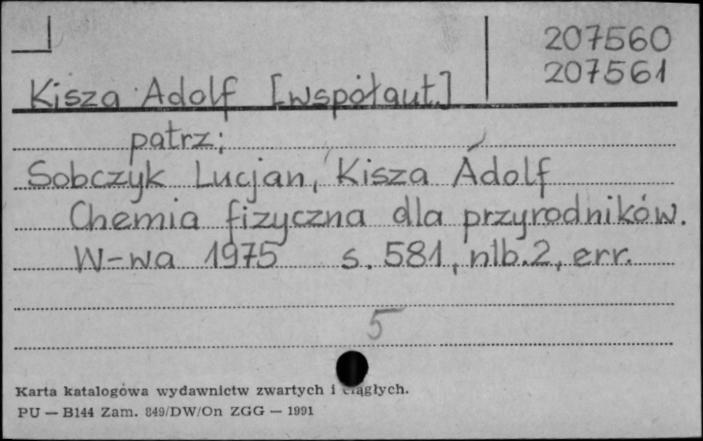 207560
207561
Kisza Adolf [współaut.]
patrz:
Sobczyk Lucjan, Kisza Adolf
Chemia fizyczna dla przyrodników.
W-wa 1975 s. 581, nlb. 2, err.
5
Karta katalogowa wydawnictw zwartych i ciągłych.
PU — B144 Zam. 849/DW/On ZGG — 1991